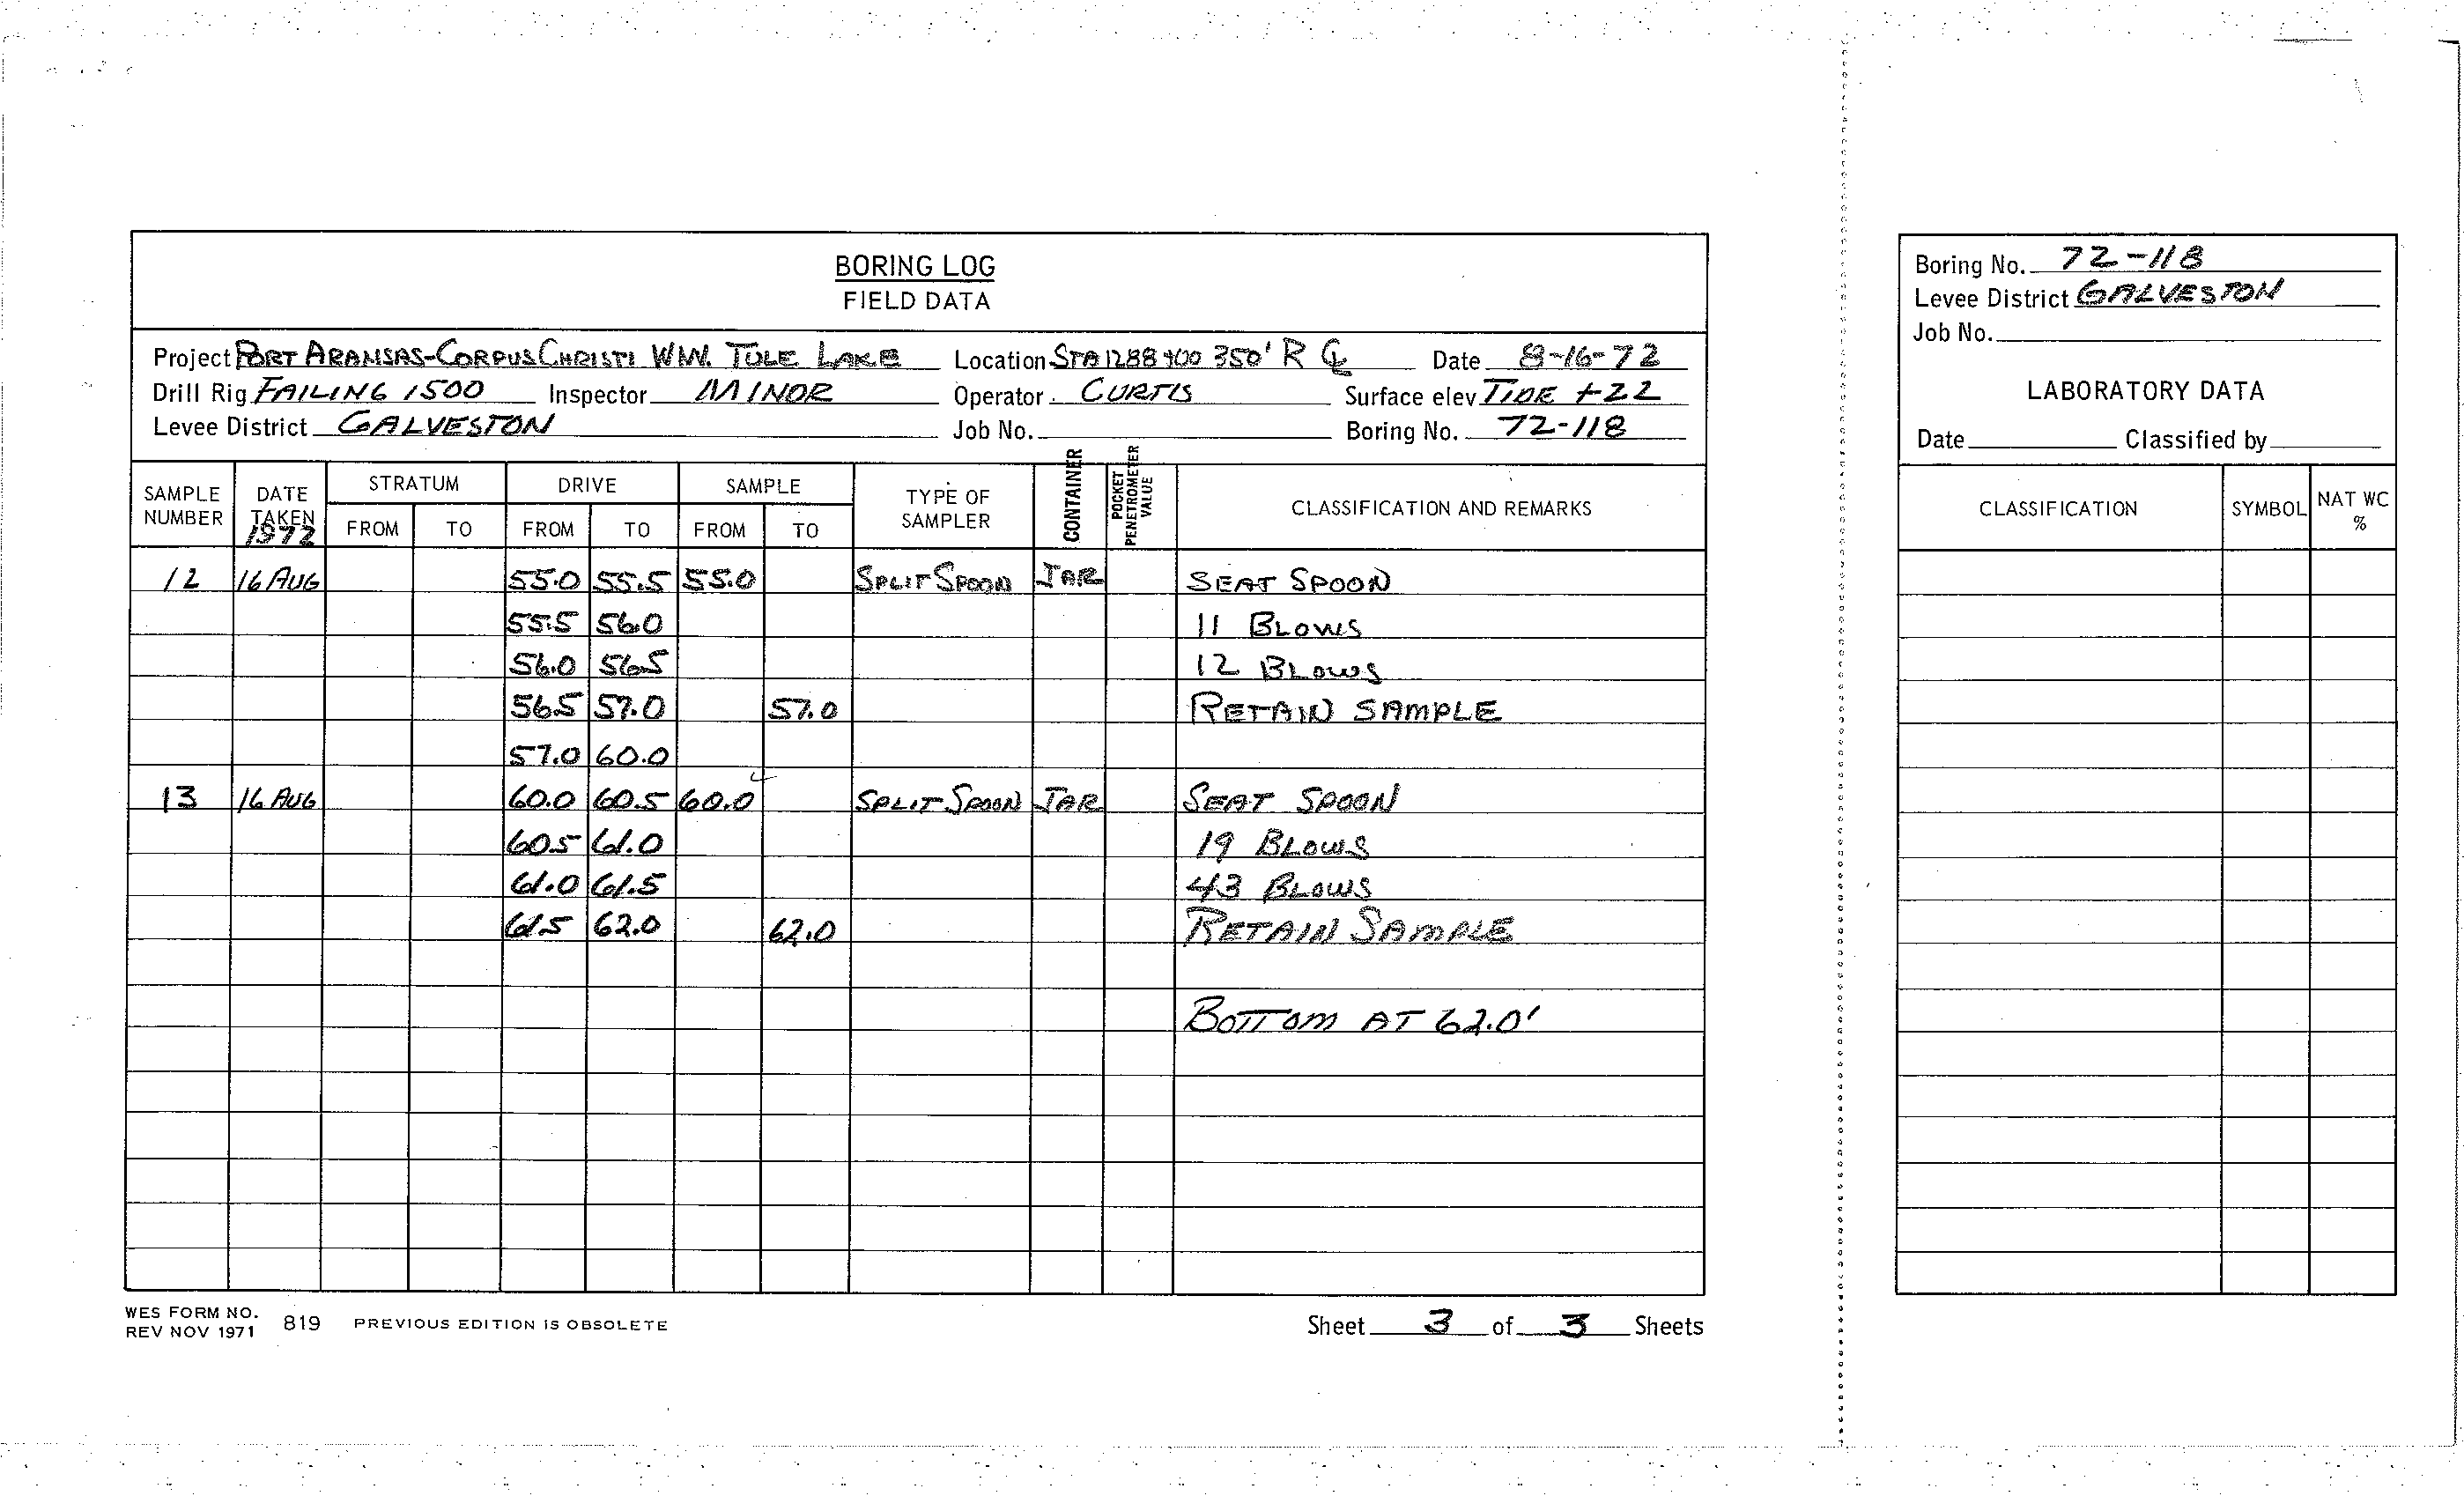 BORING LOG
FIELD DATA
Project PORT ARANSAS-CORPUS CHRISTI WW. TULE LAKE Location STA 1288+00 350' R ℄ Date 8-16-72
Drill Rig FAILING 1500 Inspector MINOR Operator CURTIS Surface elev TIDE +22
Levee District GALVESTON Job No. Boring No. 72-118
SAMPLE NUMBER DATE TAKEN 1972 STRATUM FROM TO DRIVE FROM TO SAMPLE FROM TO TYPE OF SAMPLER CONTAINER POCKET PENETROMETER VALUE CLASSIFICATION AND REMARKS
12 16 AUG 55.0 55.5 55.0 SPLIT SPOON JAR SEAT SPOON
55.5 56.0 11 BLOWS
56.0 56.5 12 BLOWS
56.5 57.0 57.0 RETAIN SAMPLE
57.0 60.0
13 16 AUG 60.0 60.5 60.0 SPLIT SPOON JAR SEAT SPOON
60.5 61.0 19 BLOWS
61.0 61.5 43 BLOWS
61.5 62.0 62.0 RETAIN SAMPLE
BOTTOM AT 62.0'
WES FORM NO. 819 PREVIOUS EDITION IS OBSOLETE
REV NOV 1971
Sheet 3 of 3 Sheets
Boring No. 72-118
Levee District GALVESTON
Job No.
LABORATORY DATA
Date Classified by
CLASSIFICATION SYMBOL NAT WC %